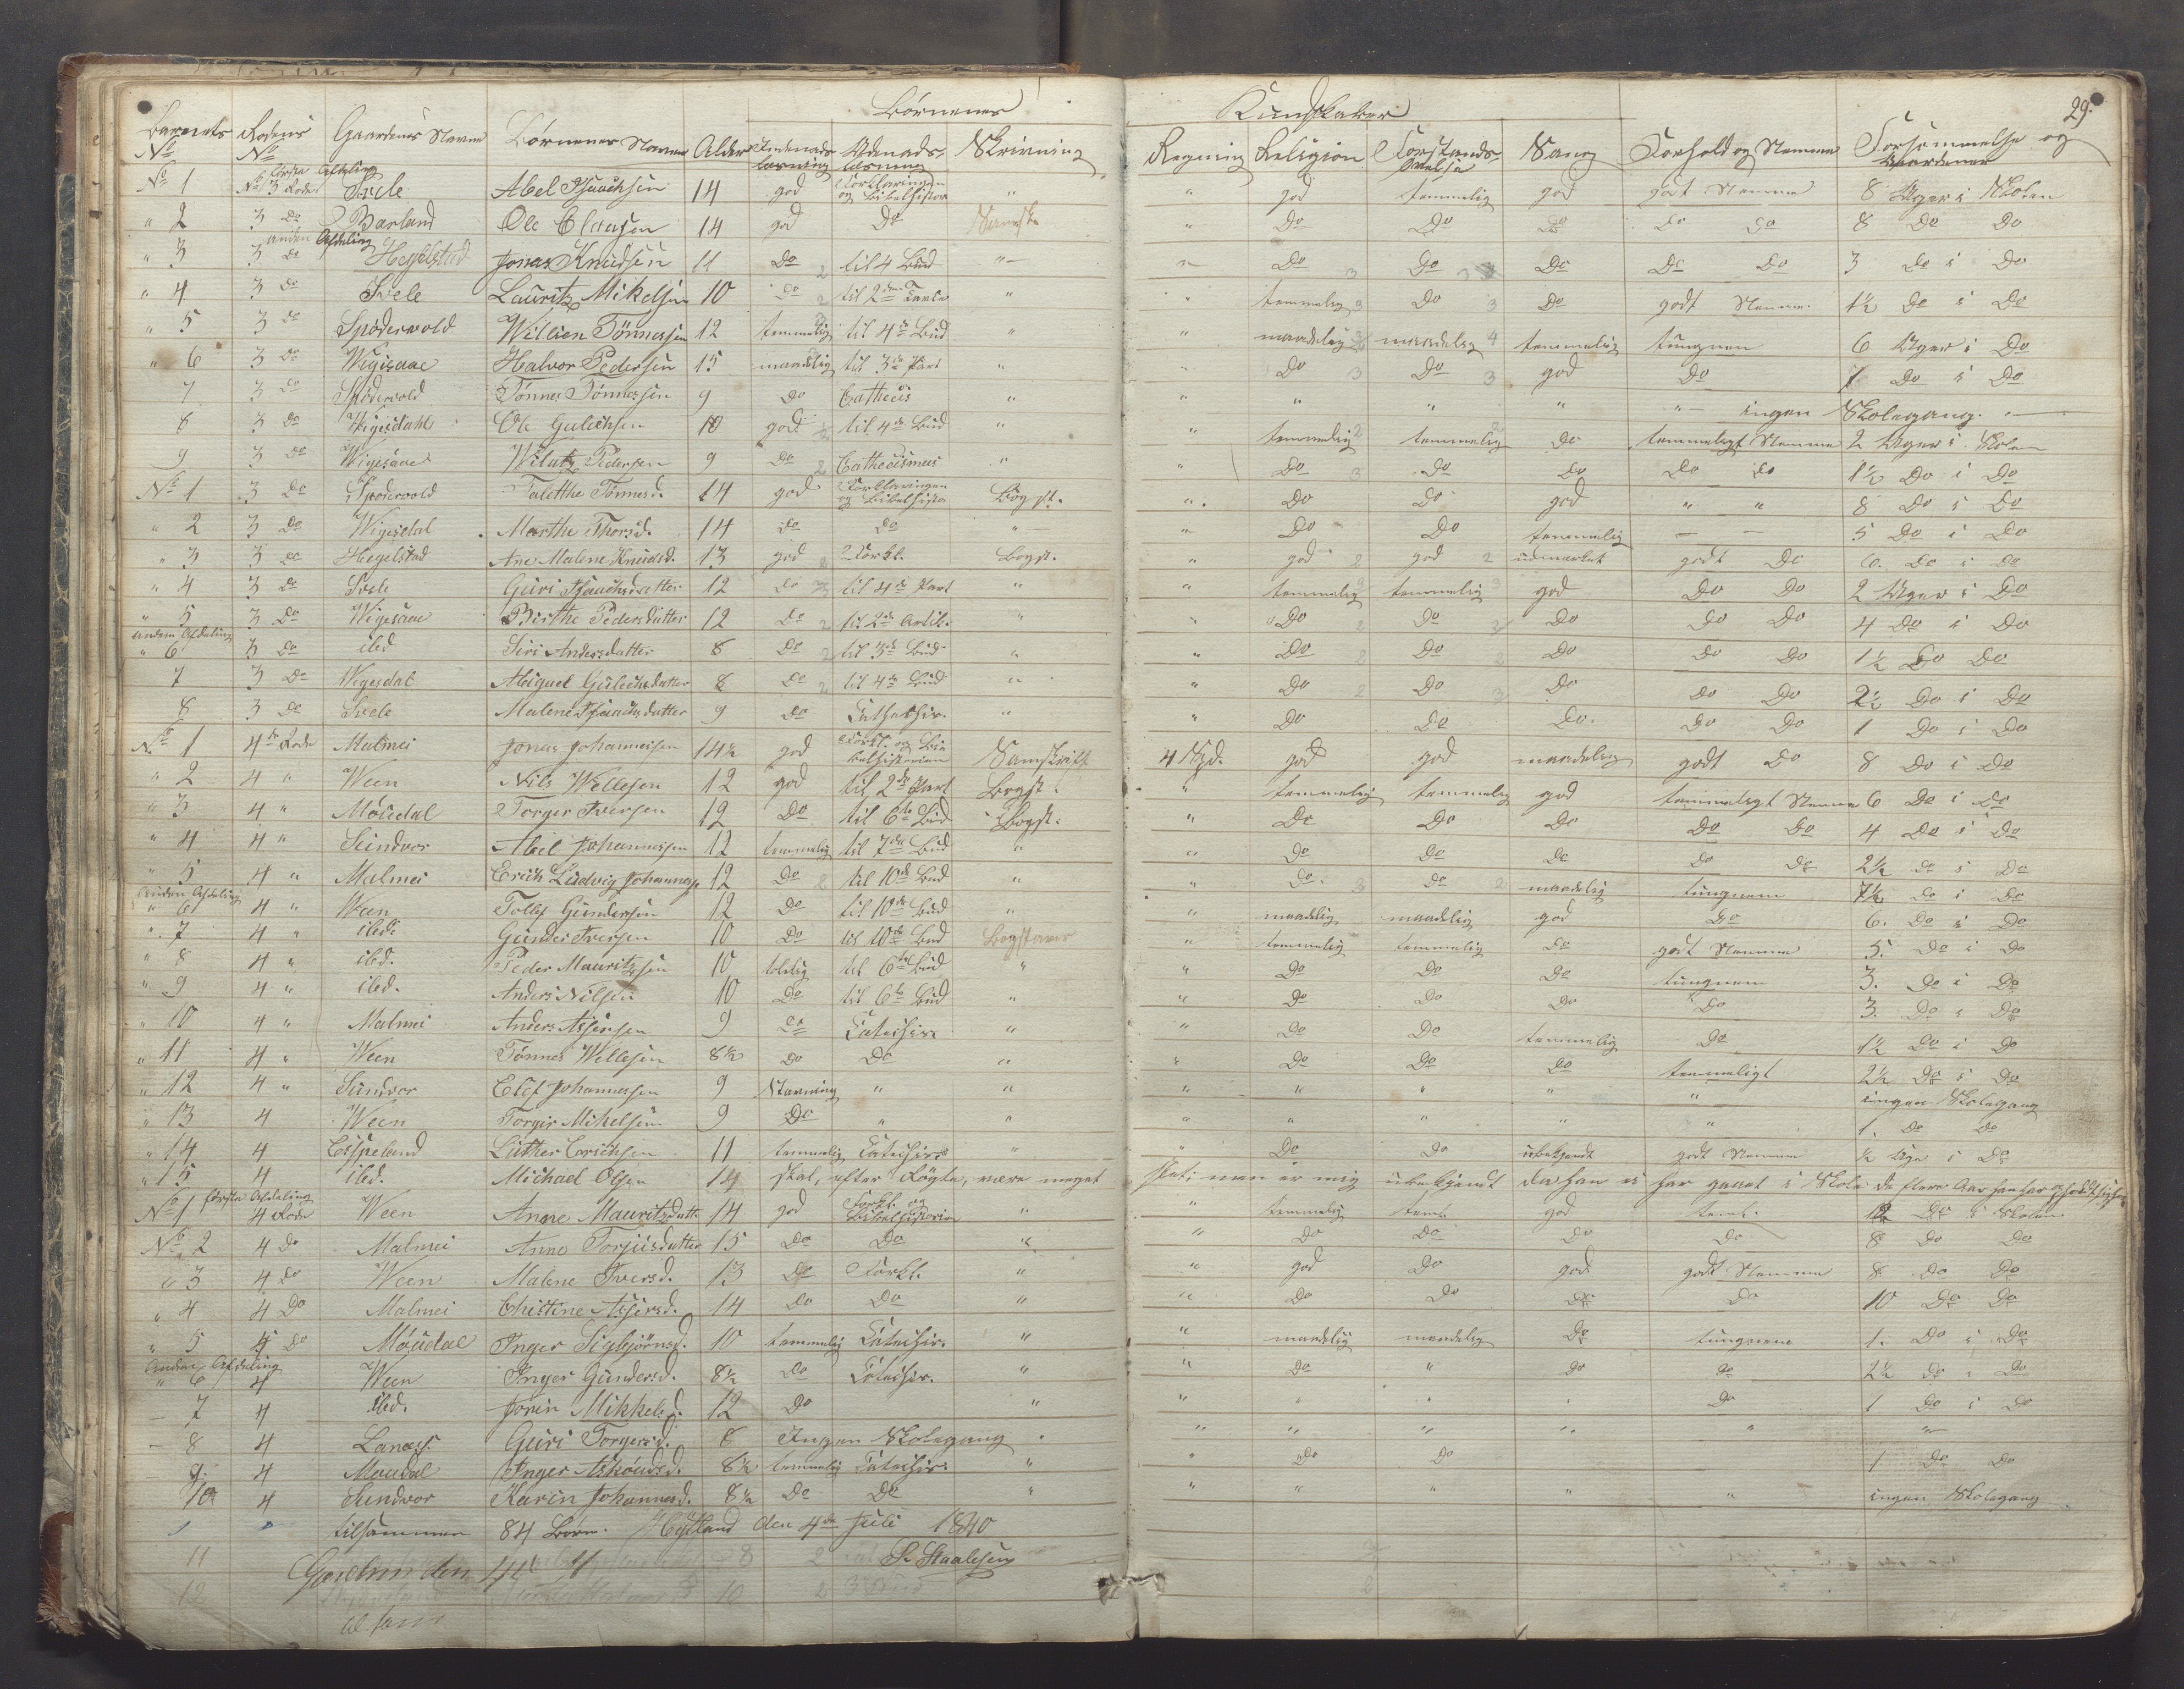 Børnenes Kundskaber 29.
Barnets No Rodens No Gaardenes Navne Børnenes Navne Alder Indenads- læsning Udenads- læsning Skrivning Regning Religion Forstands- øvelse Sang Forhold og Nemme Forsømmelse og
første Afdeling
No 1 No 3 Rode Svele Abel Isaachsen 14 god Forklaringen og Bibelhistor " " god temmelig god godt Nemme 8 Uger i Skolen
" 2 3 Do Barland Ole Clausen 14 god Do " Do Do Do Do Do 8 Do Do
anden Afdeling
" 3 3 Do Hegelstad Jonas Knudsen 11 Do 2 til 4 Bud " " Do 3 Do 3 Do Do Do 3 Do i Do
" 4 3 Do Svele Lauritz Mikelsen 10 Do 2 til 2den Part " " temmelig 3 Do 3 Do godt Nemme 1½ Do i Do
" 5 3 Do Spødervold Willien Tönnessen 12 temmelig til 4de Bud " " maadelig maadelig 4 temmelig tungnem 6 Uger i Do
" 6 3 Do Wigesaae Halvor Pedersen 15 maadelig til 3die Part " " Do 3 Do 3 god Do 1 Do i Do
7 3 Do Spødervold Tönnes Tönnessen 9 Do Cathecis " " " " " " ingen Skolegang.
8 3 Do Wigesdahl Ole Gulichsen 10 god til 4de Bud " " temmelig 2 temmelig 2 Do temmeligt Nemme 2 Uger i Skolen
9 3 Do Wigesaae Pedersen 9 Do 2 Cathecismus " " Do 3 Do Do Do Do 1½ Do i Do
No 1 3 Do Spødervold Talethe Tönnesd. 14 god Forklaringen og Bibelhistor Bogst. " Do Do god " " 8 Do i Do
" 2 3 Do Wigesdal Marthe Thorsd. 14 Do Do " " Do Do temmelig 5 Do i Do
" 3 3 Do Hegelstad Ane Malene Knudsd. 13 god 2 Forkl. Bogst. " god 2 god 2 udmærket godt Do 6. Do i Do
" 4 3 Do Svele Guri Isaachsdatter 12 Do til 4de Part " " temmelig temmelig 3 god Do Do 2 Uger i Do
" 5 3 Do Wigesaae Birthe Pedersdatter 12 Do 2 til 2den Artik. " " Do 2 Do Do Do Do 4 Do i Do
anden Afdeling
" 6 3 Do ibd Siri Andersdatter 8 Do 2 til 3die Bud " " Do 2 Do 2 Do Do Do 1½ Do Do
7 3 Do Wigesdal Abiguel Gulichsdatter 8 Do 2 til 4de Bud " " Do 2 Do 3 Do Do Do 2½ Do i Do
8 3 Do Svele Malene Isaachsdatter 9 Do Cathechis. " " Do Do Do. Do Do 1 Do i Do
No 1 4de Rode Malmei Jonas Johannessen 14½ god Forkl. og Bibelhistorien Samskrift 4 Spd. god god maadelig godt Do 8 Do i Do
" 2 4 " Ween Nils Wellesen 12 god til 2den Part Bogst. " temmelig temmelig god temmeligt Nemme 6 Do i Do
" 3 4 " Moudal Torger Iversen 12 Do til 6te Bud Bogst. " Do Do Do Do Do 4 Do i Do
" 4 4 " Sundvor Abel Johannessen 12 temmelig til 7de Bud " " Do Do Do Do Do 2½ Do i Do
" 5 4 " Malmei Erich Ludvig Johanness. 12 Do 2 til 10de Bud " " Do. 3 Do 2 maadelig tungnem 7½ Do i Do
anden Afdeling
" 6 4 " Ween Tollef Gundersen 12 Do til 10de Bud " " maadelig maadelig god Do 6. Do i Do
" 7 4 " ibd. Gunder Iversen 10 Do til 10de Bud Bogstaver " temmelig temmelig Do godt Nemme 5. Do i Do
" 8 4 " ibd. Peder Mauritzsen 10 taalelig til 6te Bud " " Do Do Do tungnem 3. Do i Do
" 9 4 " ibd. Anders Nilsen 10 Do til 6te Bud " " Do Do Do Do 3. Do i Do
" 10 4 " Malmei Anders Assersen 9 Do Catechis. " " Do Do temmelig Do 1½ Do i Do
" 11 4 " Ween Tönnes Wellesen 8½ Do Do " " Do Do Do temmeligt 2½ Do i Do
" 12 4 " Sundvor Elef Johannessen 9 Stavning " " " " " " " ingen Skolegang
" 13 4 Ween Torger Mikelsen 9 Do " " " " " " 1. Do Do
" 14 4 Espeland Luther Erichsen 11 temmelig Catechis. " " Do Do ubekjendt godt Nemme ½ Uge i Do
" 15 4 ibd. Michael Olsen 14 skal, efter Rögte, være meget men er mig ubekjendt da han ei har gaaet i Skole de flere Aar
første Afdeling
No 1 4 Rode Ween Anne Mauritzdatt. 14 god Forkl. og Bibelhistorien " " temmelig tem. god tem. 12 Do i Skolen
No 2 4 Do Malmei Anne Torjusdatter 15 Do Do " " Do Do Do Do 8 Do Do
" 3 4 Do Ween Malene Iversd. 13 Do Forkl. " " god Do god godt Nemme 8 Do Do
" 4 4 Do Malmei Christine Assersd. 14 Do Do " " Do Do Do Do 10 Do Do
" 5 4 Do Moudal Inger Sigbjörnsd. 10 temmelig Catechis. " " maadelig maadelig Do tungnem 1. Do i Do
anden Afdeling
" 6 4 Ween Inger Gundersd. 8½ Do Catechis. " " Do " Do Do 2½ Do " Do
7 4 ibd. Jorin Mikkelsd. 12 Do " " Do 1 Do i Do
8 4 Lanæs Guri Torgersd. 8 Ingen Skolegang " " " " " "
9. 4 Moudal Inger Askoudsd. 8½ temmelig Catechis. " " Do Do 1 Do Do
10 4 Sundvor Karin Johannesd. 8½ Do Do " " " " " " ingen Skolegang
tilsammen 84 Börn. Heglland den 4de Juli 1840
11 8 2 S. Staalesen
12 10 2 3 Bud 2